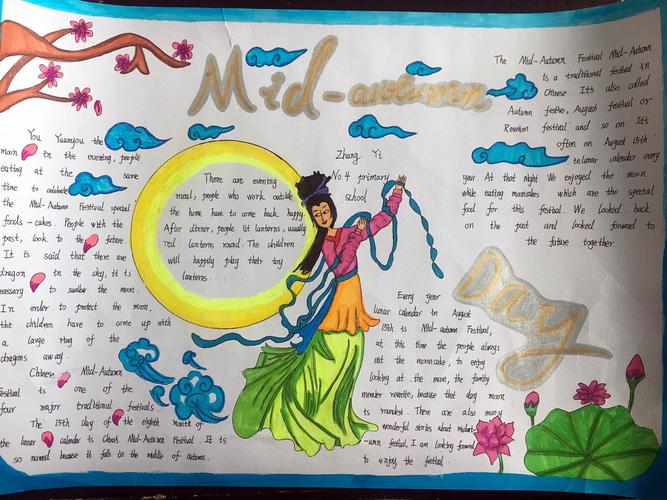 Mid-autumn
Day
The Mid-Autumn Festival Mid-Autumn
is a traditional festival in
Chinese. It's also called
Autumn festive, August festival or
Reunion festival and so on. It's
often on August 15th
in lunar calendar every
year At that night We enjoyed the moon
while eating mooncakes which are the special
food for this festival. We looked back
on the past and looked forward to
the future together
You Yuanyou the
moon in the evening, people
eating at the same
time to celebrate
the Mid-Autumn Festival special
foods - cakes. People with the
past, look to the future.
It is said that there are
dragon in the sky, it is
necessary to swallow the moon.
In order to protect the moon,
the children have to come up with
a large ring of the
dragons away.
Chinese Mid-Autumn
festival is one of the
four major traditional festivals
The 15th day of the eighth month of
the lunar calendar is Mid-Autumn Festival. It is
so named because it falls in the middle of autumn.
There are evening
meal, people who work outside
the home have to come back happy.
After dinner, people lit lanterns, usually
red lanterns round. The children
will happily play their toy
lanterns.
Zhang Yi
No.4 primary
school
Every year
lunar calendar in August
15th is Mid-autumn Festival,
at this time the people always
eat the mooncake, to enjoy
looking at the moon, the family
member reunite, because that day moon
is roundest. There are also many
wonderful stories about midaut-
-umn festival, I am looking forward
to enjoy the festival.